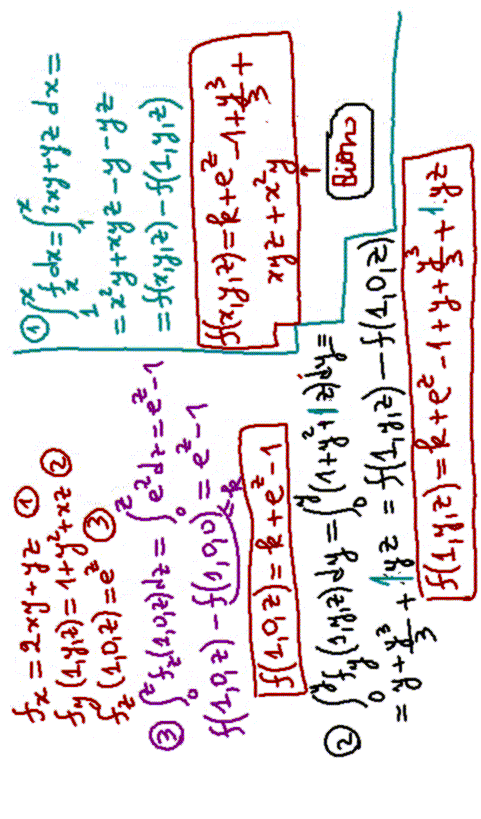 f_x = 2xy + yz ①
f_y (1,y,z) = 1+y²+xz ②
f_z (1,0,z) = e^z ③
③ ∫_0^z f_z(1,0,z)dz = ∫_0^z e^z dz = e^z - 1
f(1,0,z) - f(1,0,0) = e^z - 1
k
f(1,0,z) = k + e^z - 1
② ∫_0^y f_y(1,y,z)dy = ∫_0^y (1+y²+1z)dy =
= y + y³/3 + 1yz = f(1,y,z) - f(1,0,z)
f(1,y,z) = k + e^z - 1 + y + y³/3 + 1·yz
① ∫_1^x f_x dx = ∫_1^x 2xy + yz dx =
= x²y + xyz - y - yz
= f(x,y,z) - f(1,y,z)
f(x,y,z) = k + e^z - 1 + y³/3 +
xyz + x²y